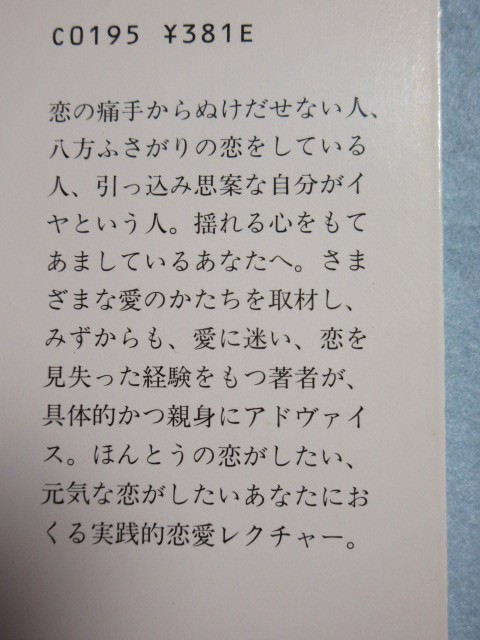 C0195 ¥381E
恋の痛手からぬけだせない人、
八方ふさがりの恋をしている
人、引っ込み思案な自分がイ
ヤという人。揺れる心をもて
あましているあなたへ。さま
ざまな愛のかたちを取材し、
みずからも、愛に迷い、恋を
見失った経験をもつ著者が、
具体的かつ親身にアドヴァイ
ス。ほんとうの恋がしたい、
元気な恋がしたいあなたにお
くる実践的恋愛レクチャー。